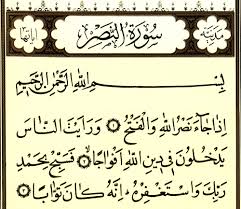 مدنية سورة النصر آياتها
بِسْمِ اللَّهِ الرَّحْمَٰنِ الرَّحِيمِ
إِذَا جَاءَ نَصْرُ اللَّهِ وَالْفَتْحُ ۝ وَرَأَيْتَ النَّاسَ
يَدْخُلُونَ فِي دِينِ اللَّهِ أَفْوَاجًا ۝ فَسَبِّحْ بِحَمْدِ
رَبِّكَ وَاسْتَغْفِرْهُ ۚ إِنَّهُ كَانَ تَوَّابًا ۝